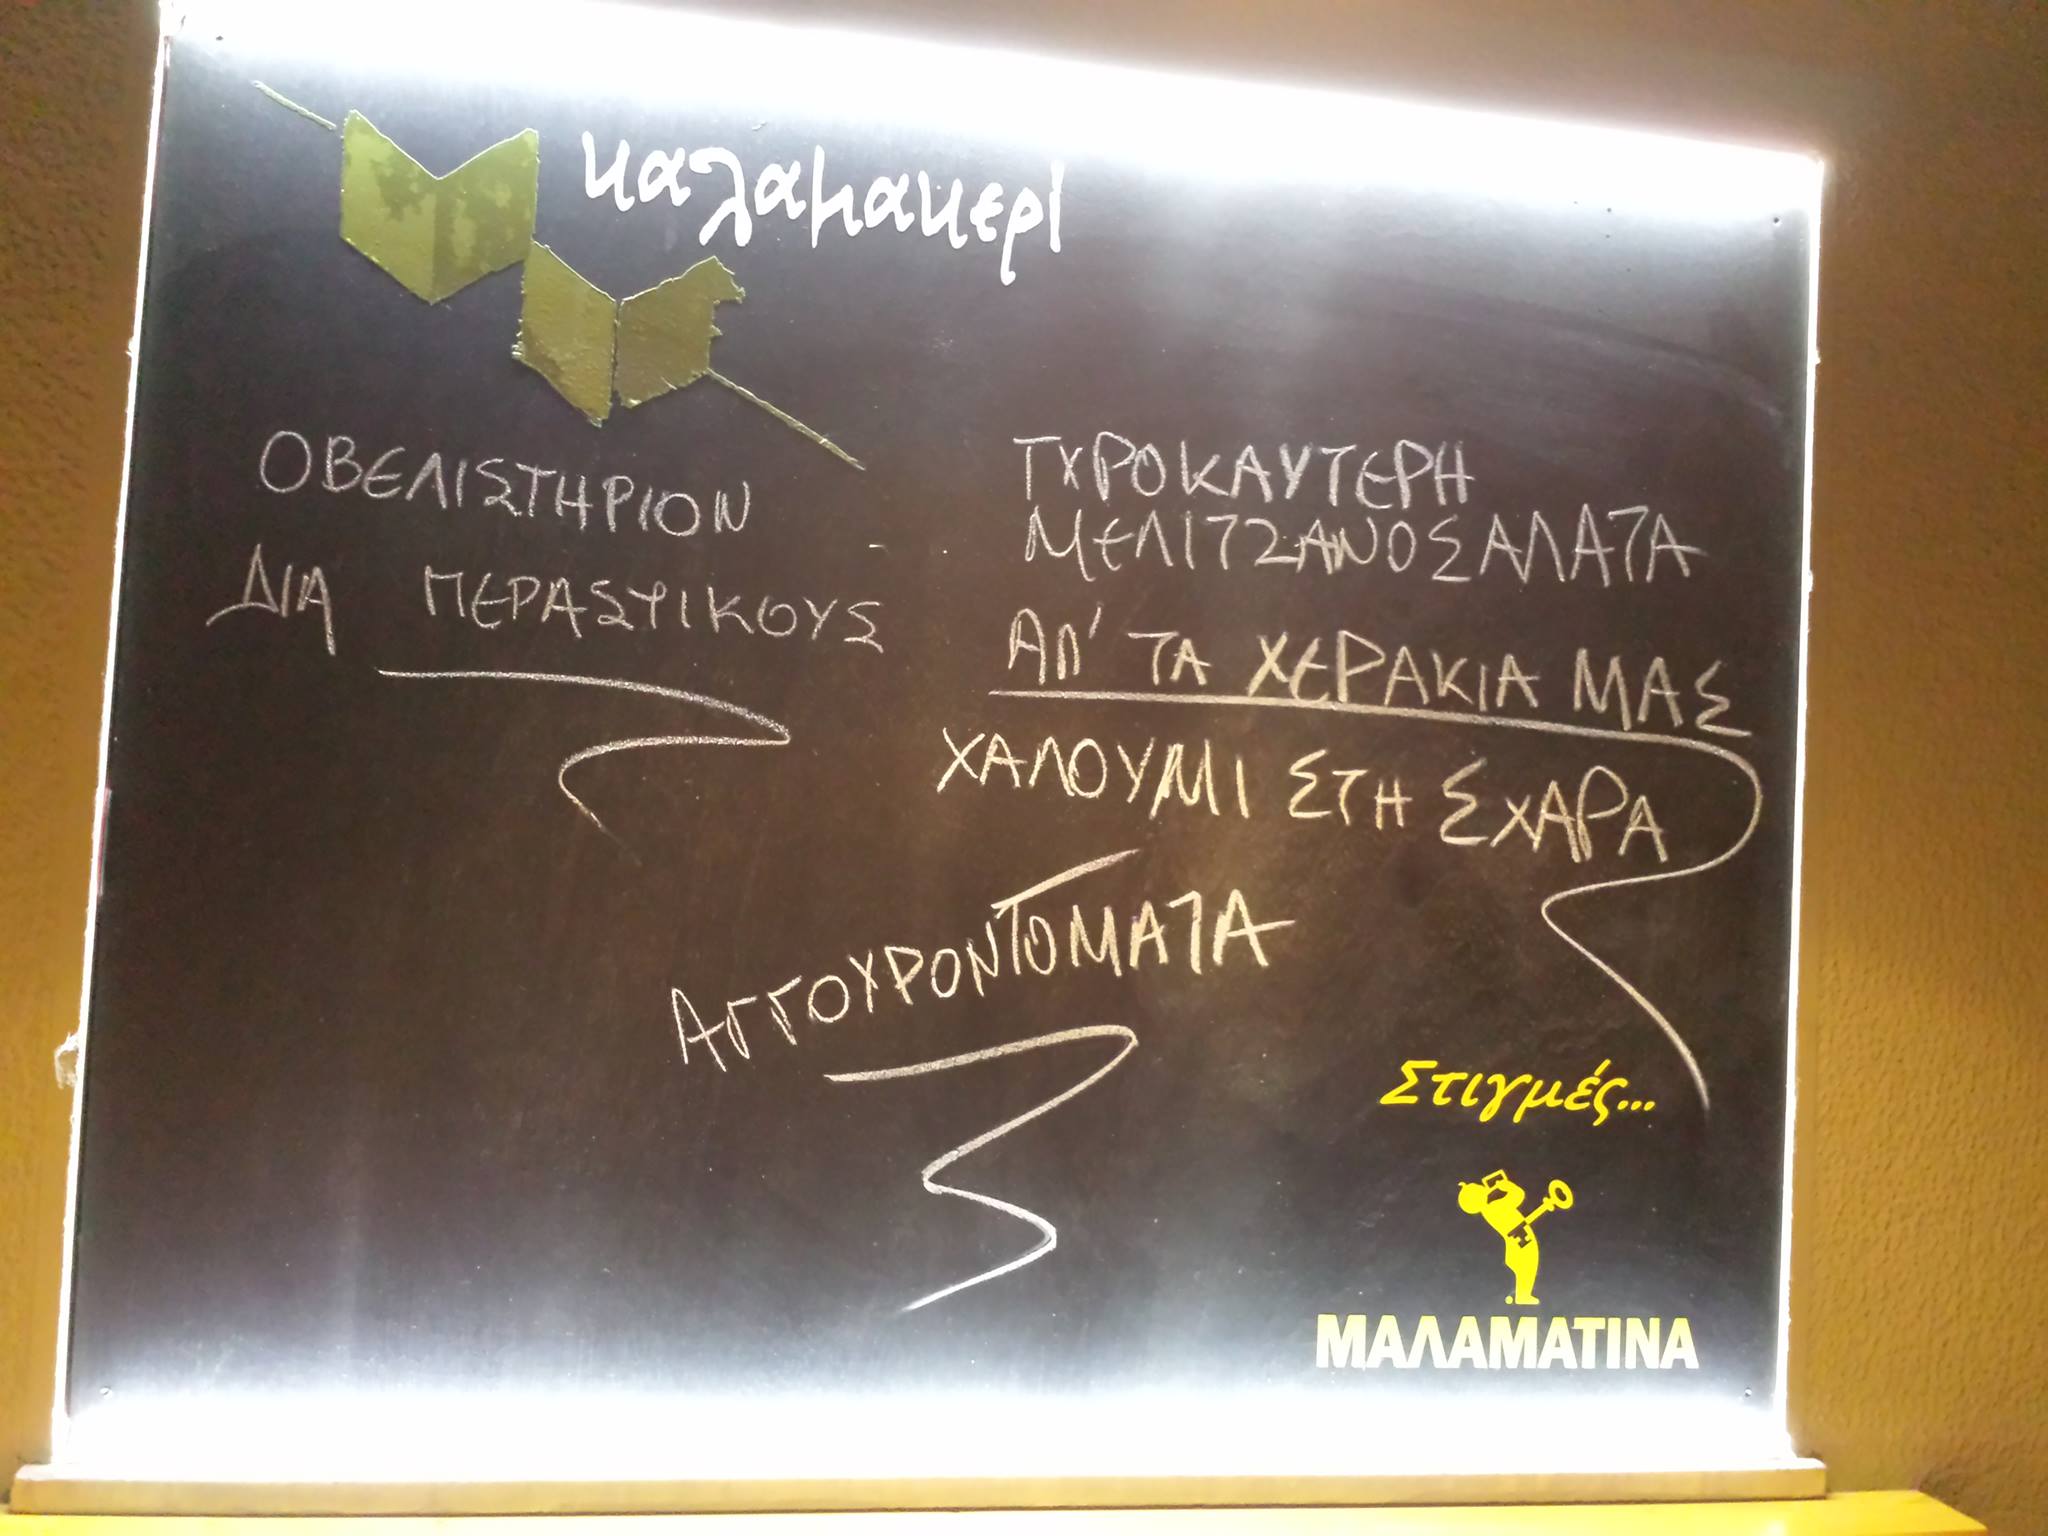 καλαμακερί
ΟΒΕΛΙΣΤΗΡΙΟΝ
ΔΙΑ ΠΕΡΑΣΤΙΚΟΥΣ
ΤΥΡΟΚΑΥΤΕΡΗ
ΜΕΛΙΤΖΑΝΟΣΑΛΑΤΑ
ΑΠ' ΤΑ ΧΕΡΑΚΙΑ ΜΑΣ
ΧΑΛΟΥΜΙ ΣΤΗ ΣΧΑΡΑ
ΑΓΓΟΥΡΟΝΤΟΜΑΤΑ
Στιγμές...
ΜΑΛΑΜΑΤΙΝΑ